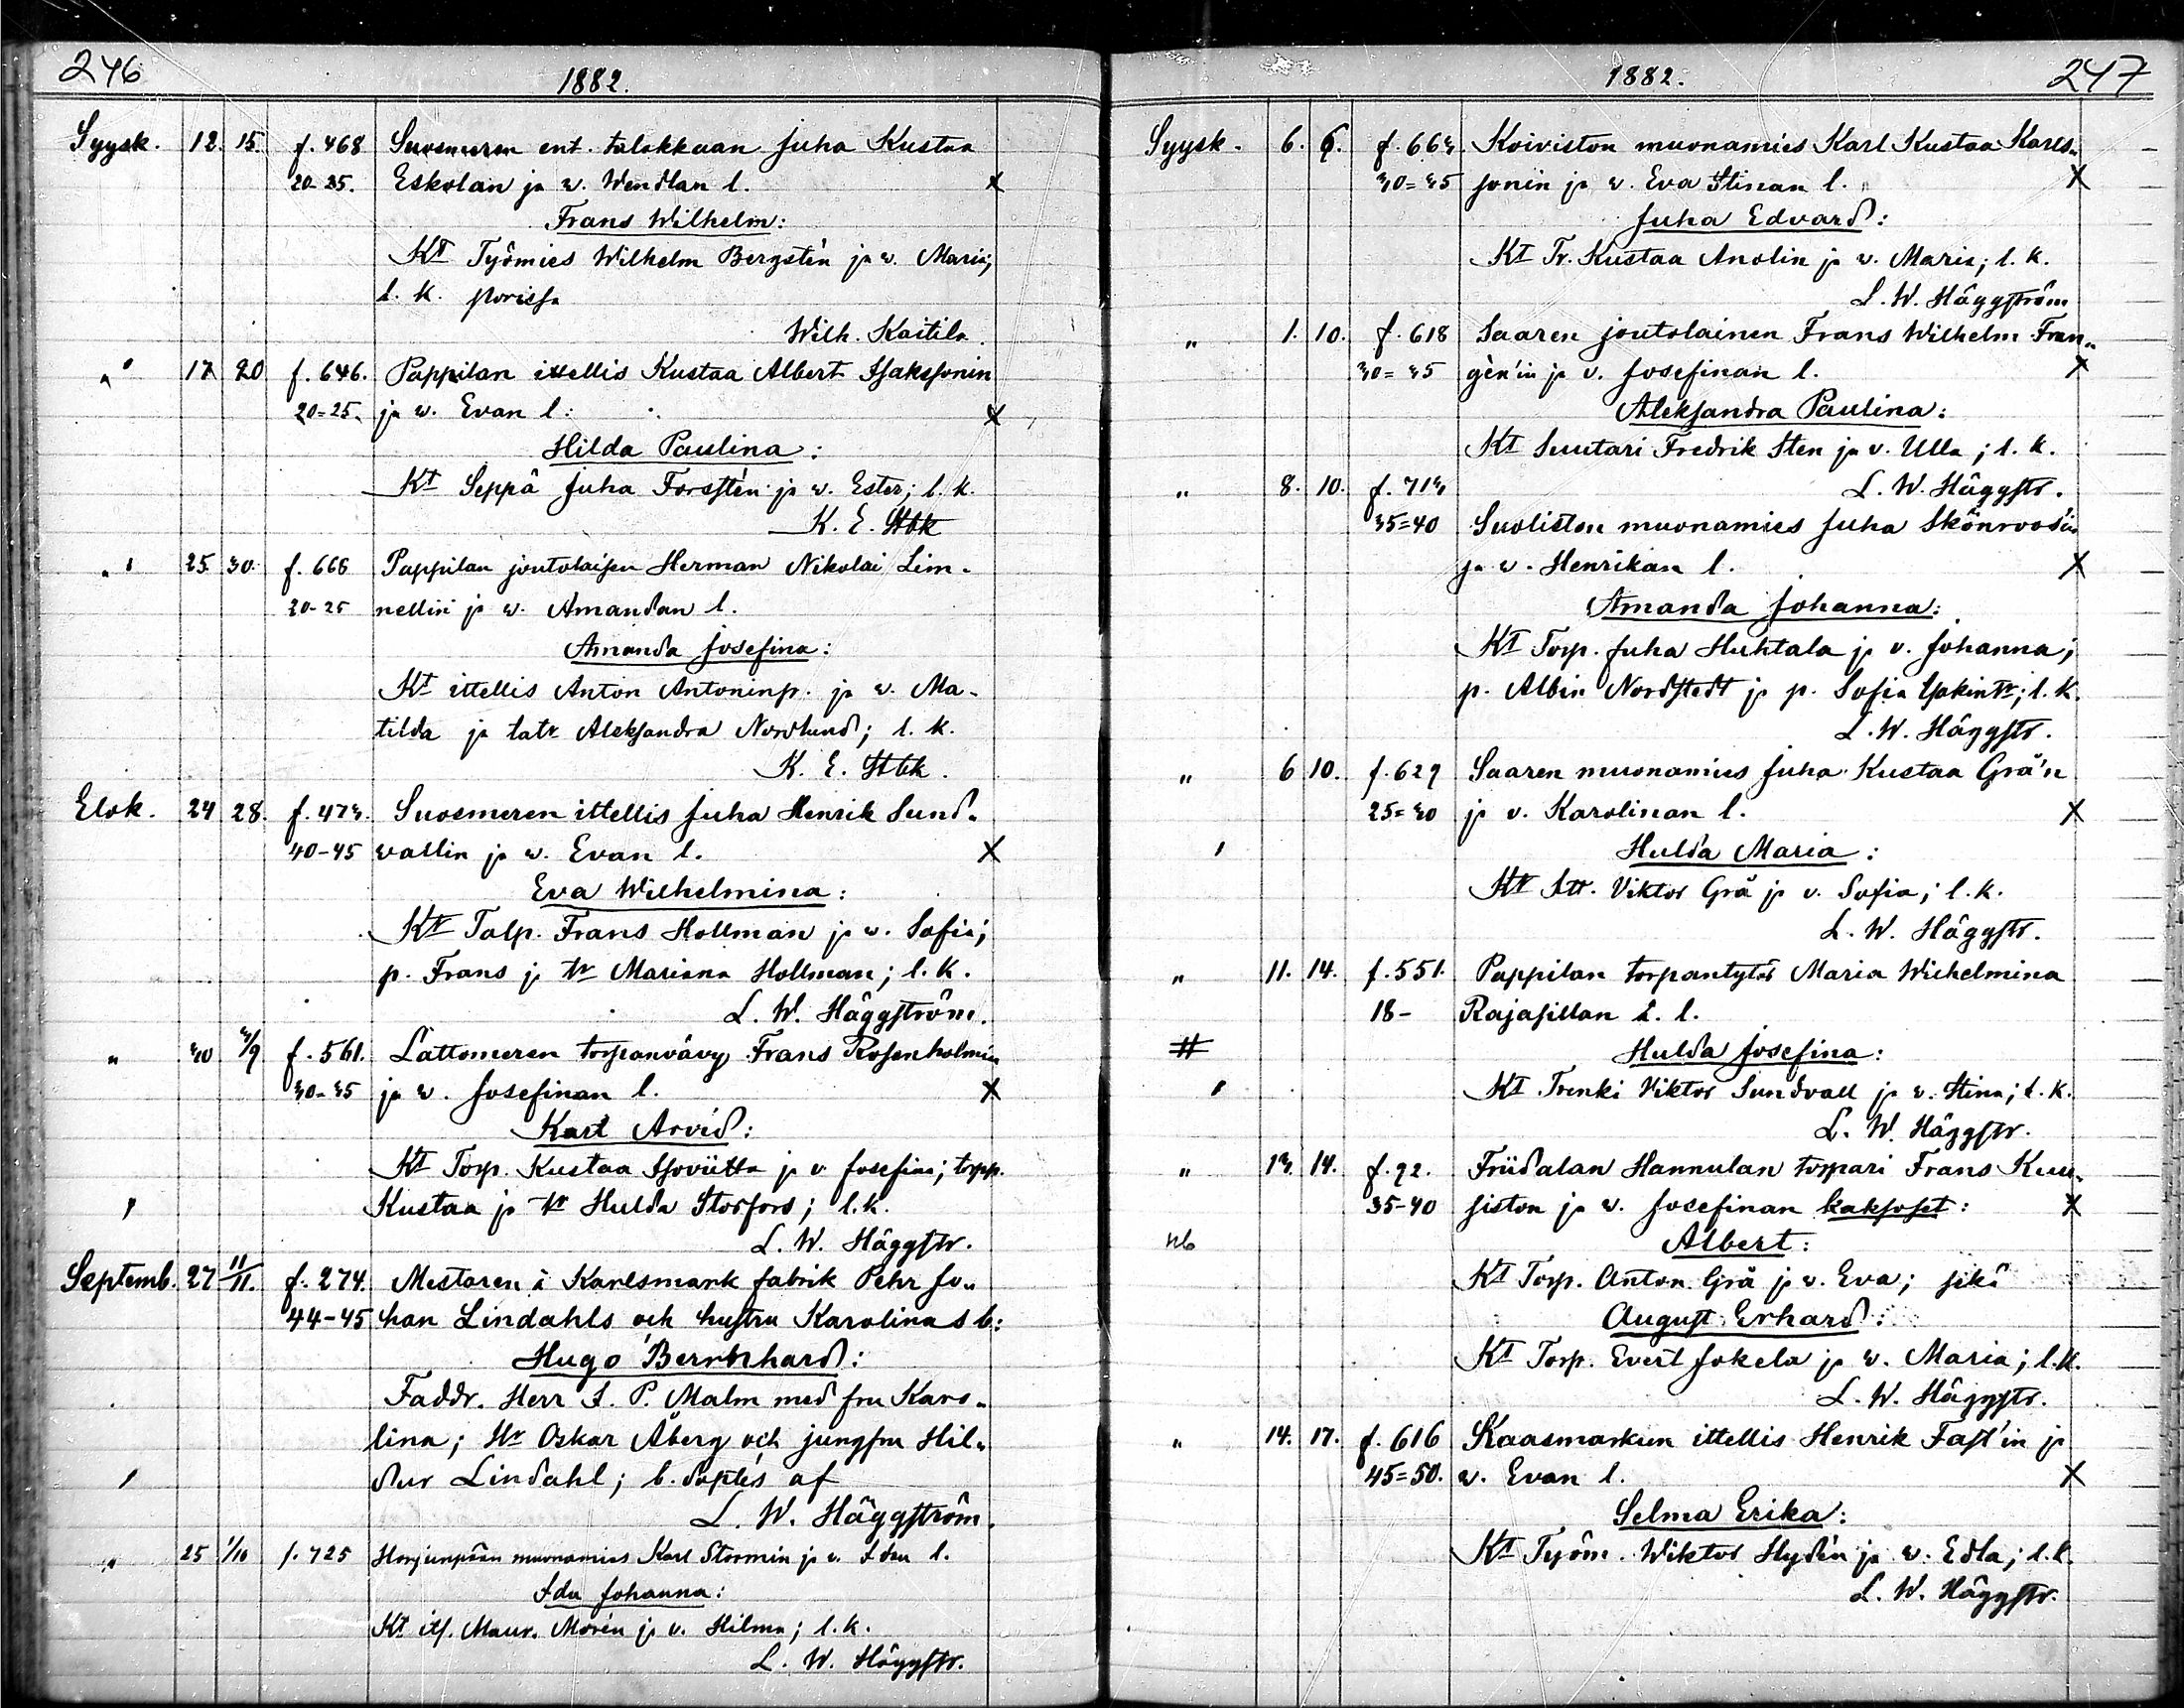 246
1882.
Syysk. 12. 15. f. 468 Suosmeren ent. talokkaan Juha Kustaa
20-25. Eskolan ja w. Wendlan l. X
Frans Wilhelm:
Kt Työmies Wilhelm Bergstén ja w. Maria;
l. k. Porissa
Wilh. Kaitila.
" 17 20 f. 646. Pappilan ittellis Kustaa Albert Isakssonin
20=25. ja w. Evan l: X
Hilda Paulina:
Kt Seppä Juha Forstén ja w. Ester; l. k.
K. E. Stbk
" 25. 30. f. 666 Pappilan joutolaisen Herman Nikolai Lim-
20-25 nellin ja w. Amandan l.
Amanda Josefina:
Kt ittellis Anton Antoninp. ja w. Ma-
tilda ja tatr Aleksandra Nordlund; l. k.
K. E. Stbk.
Elok. 24 28. f. 473. Suosmeren ittellis Juha Henrik Sund-
40-45 vallin ja w. Evan l. X
Eva Wilhelmina:
Kt Talp. Frans Hollman ja w. Sofia;
p. Frans j. tr Mariana Hollman; l. k.
L. W. Häggström.
" 30 3/9 f. 561. Lattomeren torpanvävy Frans Rosenholmin
30-35 ja w. Josefinan l. X
Karl Arvid:
Kt Torp. Kustaa Isoviitta ja v. Josefina; torpp.
Kustaa ja tr Hulda Storfors; l. k.
L. W. Häggstr.
Septemb. 27 11/11. f. 274. Mestaren i Karlsmark fabrik Pehr Jo-
44-45 han Lindahls och hustru Karolinas b:
Hugo Bernhard:
Faddr. Herr I. P. Malm med fru Karo-
lina; Hr Oskar Åberg och jungfru Hil-
dur Lindahl; b. döptes af
L. W. Häggström.
" 25 1/10 f. 725 Harjunpään muonamies Karl Stormin ja v. Idan l.
Ida Johanna:
Kt its. Maur. Morén ja v. Hilma; l. k.
L. W. Häggstr.
1882.
247
Syysk. 6. 6. f. 663. Koiviston muonamies Karl Kustaa Karls-
30=35 sonin ja w. Eva Stinan l. X
Juha Edvard:
Kt Tr. Kustaa Anolin ja v. Maria; l. k.
L. W. Häggström
" 1. 10. f. 618 Saaren joutolainen Frans Wilhelm Fran-
30=35 gèn'in ja v. Josefinan l. X
Aleksandra Paulina:
Kt Suutari Fredrik Sten ja v. Ulla; l. k.
" 8. 10. f. 713 L. W. Häggstr.
35=40 Suoliston muonamies Juha Skönroos'in
ja w. Henrikan l. X
Amanda Johanna:
Kt Torp. Juha Huhtala ja v. Johanna;
p. Albin Nordstedt ja p. Sofia Isakintr; l. k.
L. W. Häggstr.
" 6 10. f. 629 Saaren muonamies Juha Kustaa Grå'n
25=30 ja v. Karolinan l. X
Hulda Maria:
Kt Itt. Viktor Grå ja v. Sofia; l. k.
L. W. Häggstr.
" 11. 14. f. 551. Pappilan torpantytär Maria Wilhelmina
18- Rajasillan ä. l.
# Hulda Josefina:
Kt Trenki Viktor Sundvall ja v. Stina; l. k.
L. W. Häggstr.
" 13. 14. f. 92. Friidalan Hannulan torpari Frans Kuu-
35-40 siston ja w. Josefinan kaksoset: X
nb Albert:
Kt Torp. Anton Grå ja w. Eva; sekä
August Erhard:
Kt Torp. Evert Jokela ja w. Maria; l. k.
L. W. Häggstr.
" 14. 17. f. 616 Kaasmarkun ittellis Henrik Fast'in ja
45=50. w. Evan l. X
Selma Erika:
Kt Työm. Wiktor Hydén ja w. Edla; l. k.
L. W. Häggstr.